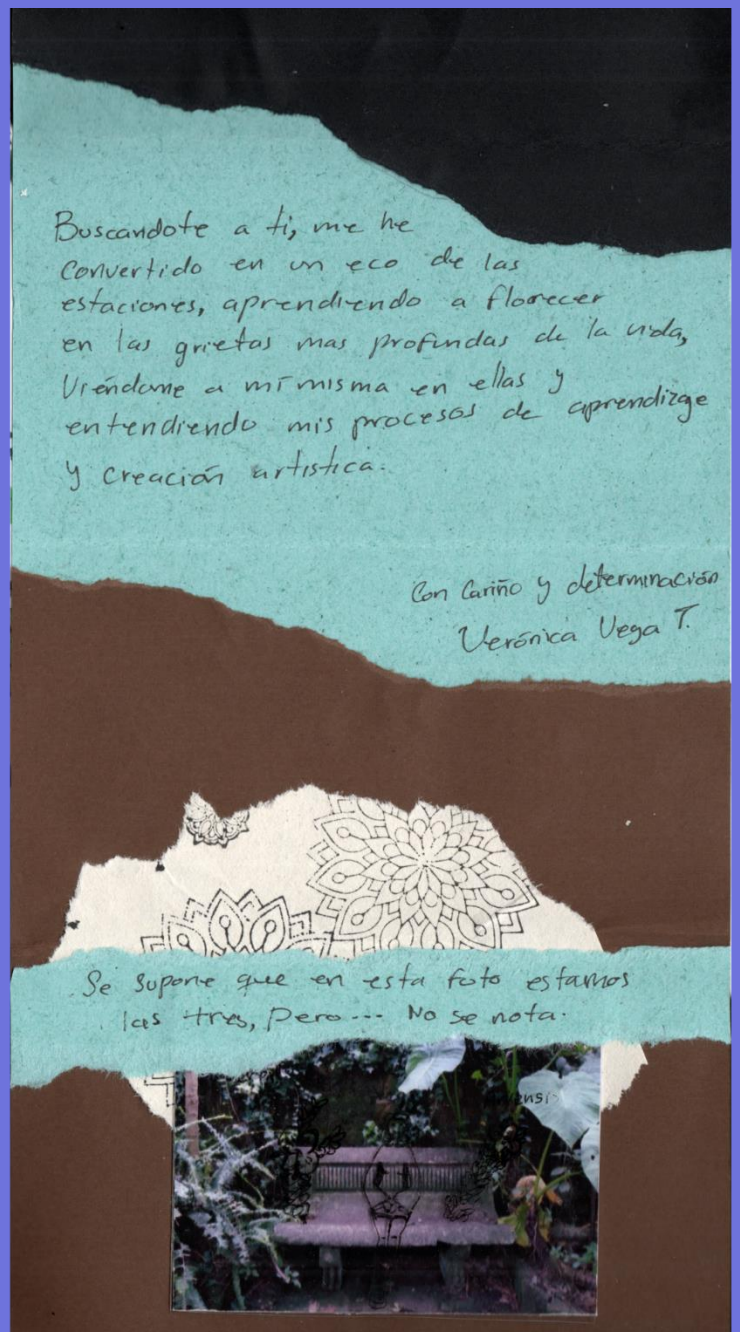 Buscandote a ti, me he
convertido en un eco de las
estaciones, aprendiendo a florecer
en las grietas mas profundas de la vida,
Viéndome a mí misma en ellas y
entendiendo mis procesos de aprendizage
y creación artistica.
Con Cariño y determinación
Verónica Vega T.
Se supone que en esta foto estamos
las tres, pero--- No se nota.